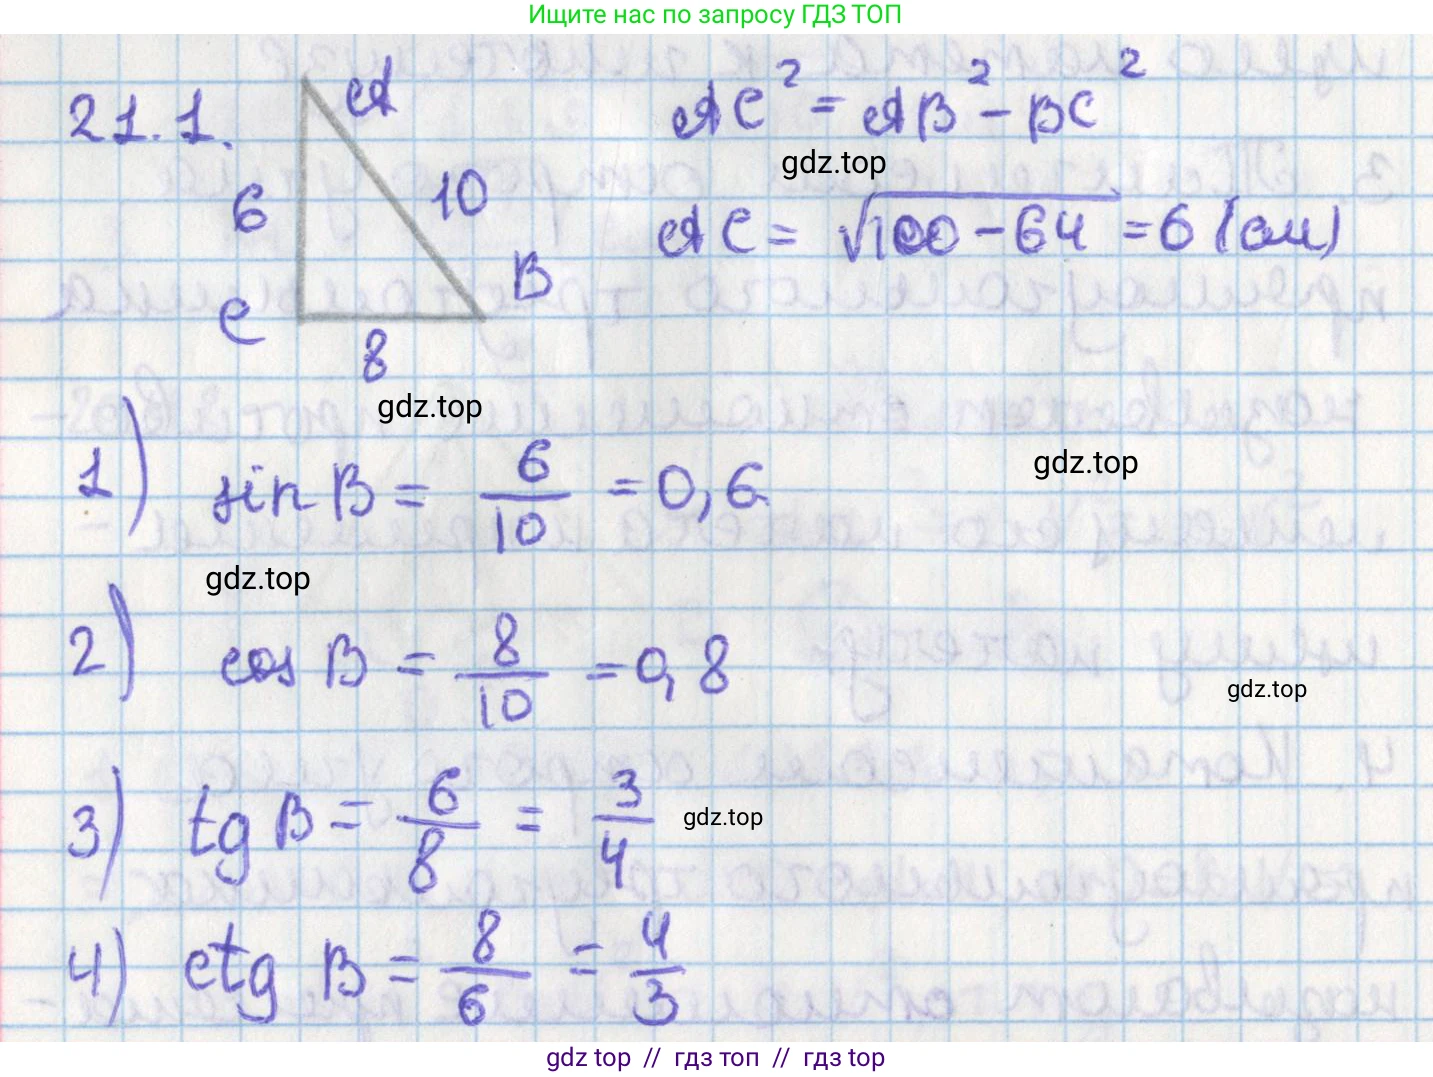 Ищите нас по запросу ГДЗ ТОП
21.1.
A
6
10
B
C
8
AC² = AB² - BC²
gdz.top
AC = √100 - 64 = 6 (см)
gdz.top
gdz.top
1) sin B = 6/10 = 0,6
gdz.top
2) cos B = 8/10 = 0,8
gdz.top
3) tg B = 6/8 = 3/4
gdz.top
4) ctg B = 8/6 = 4/3
gdz top // гдз топ // гдз top